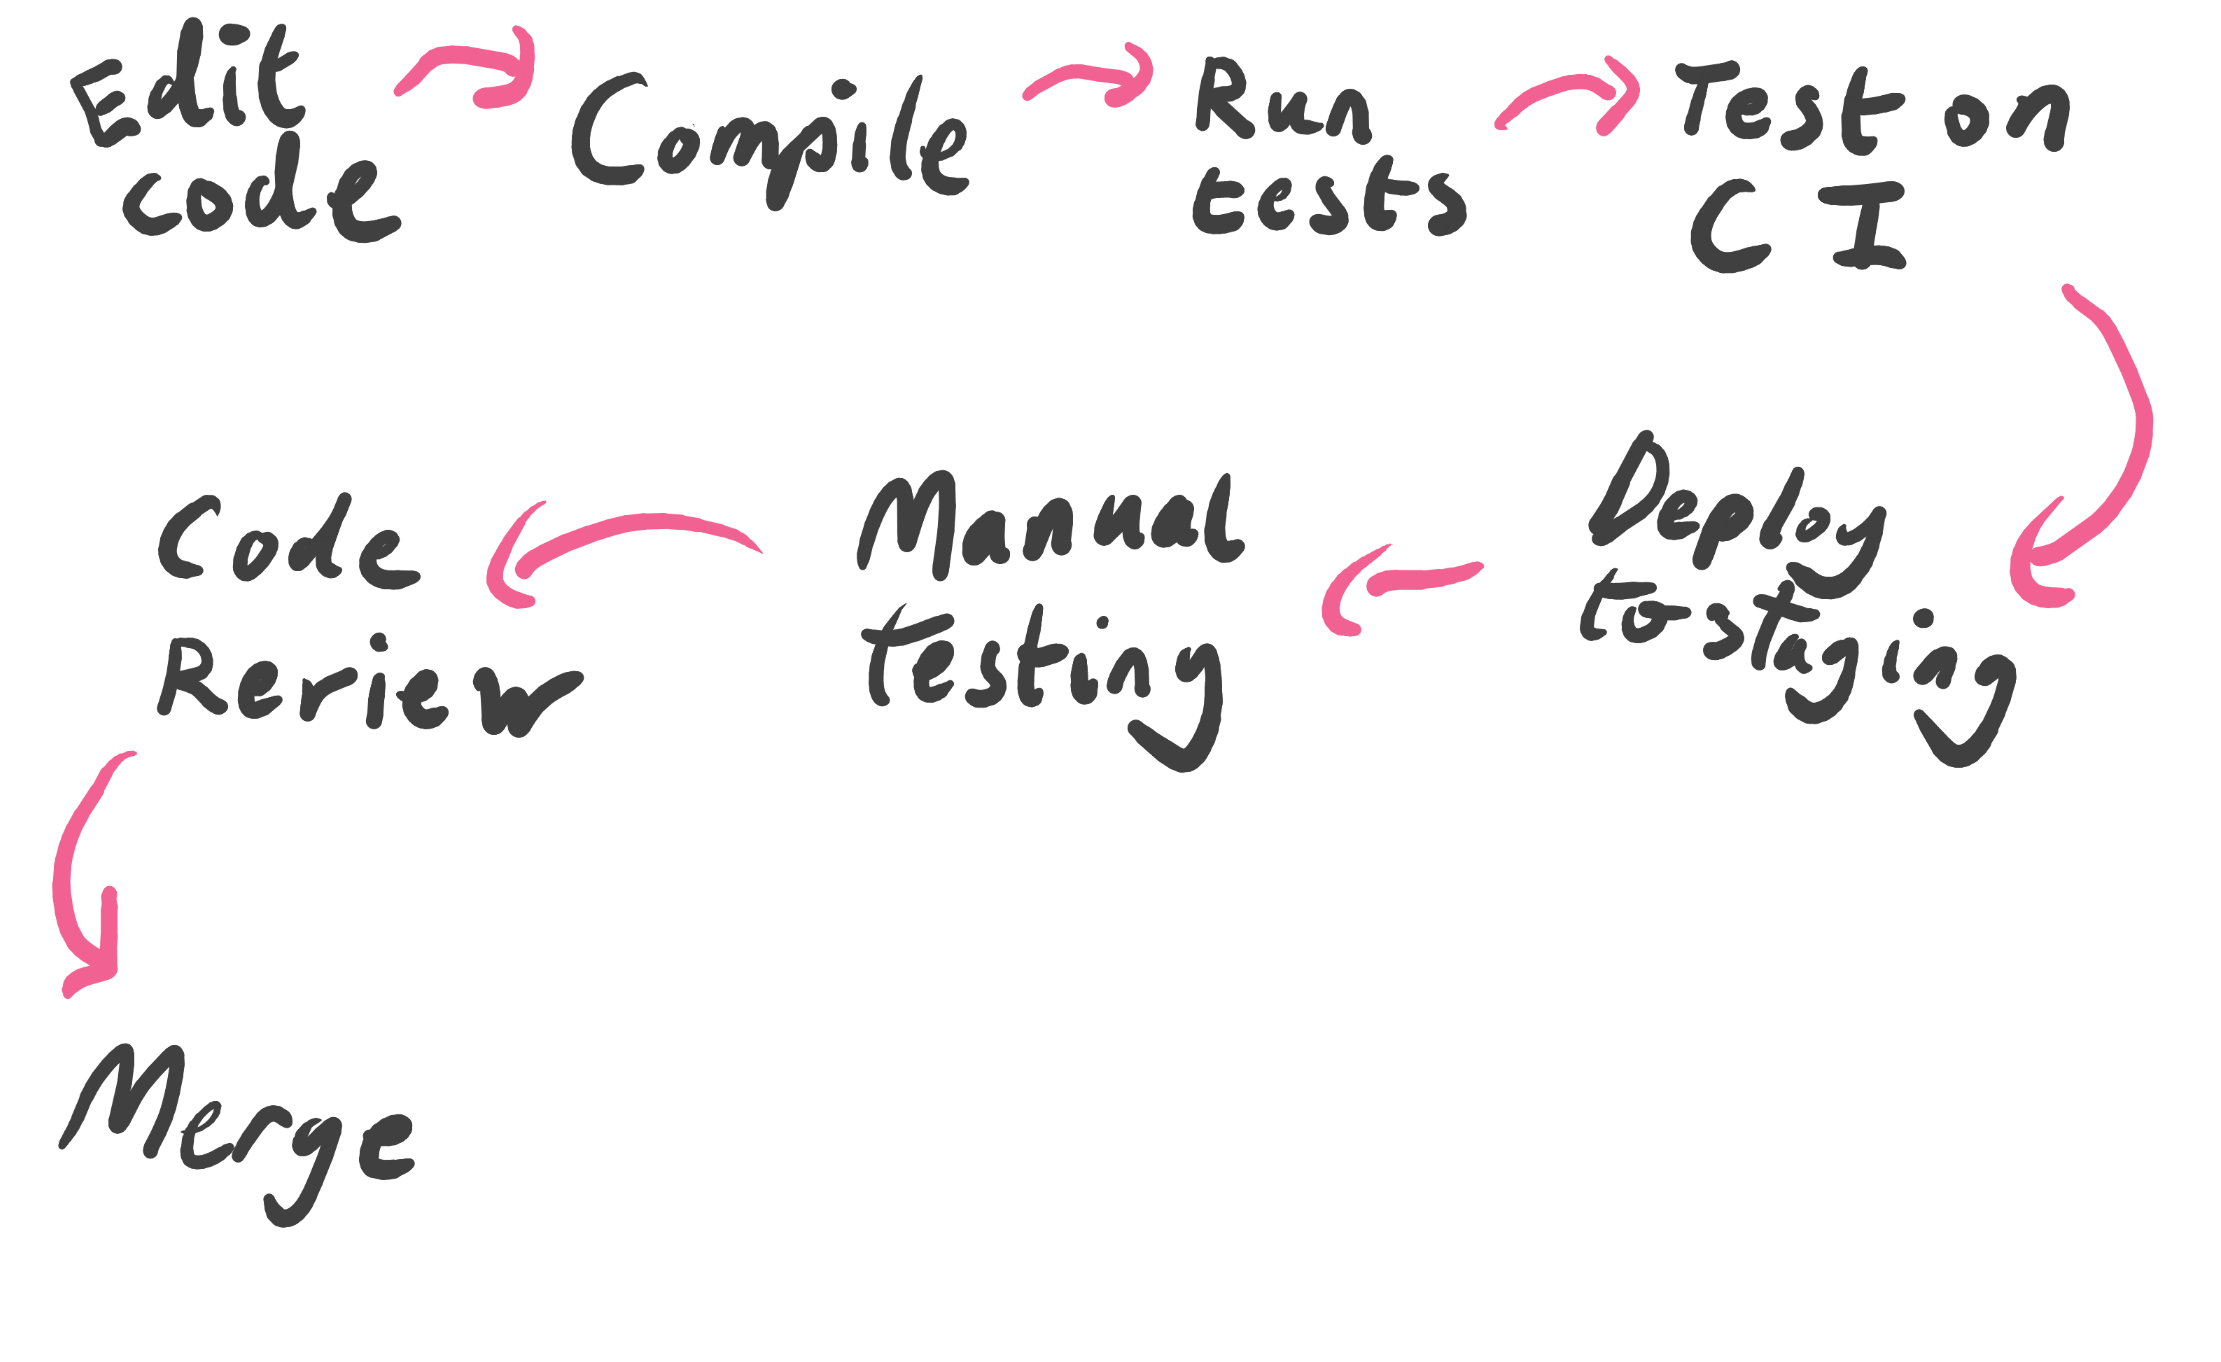 Edit
code
Compile
Run
tests
Test on
CI
Deploy
to staging
Manual
testing
Code
Review
Merge